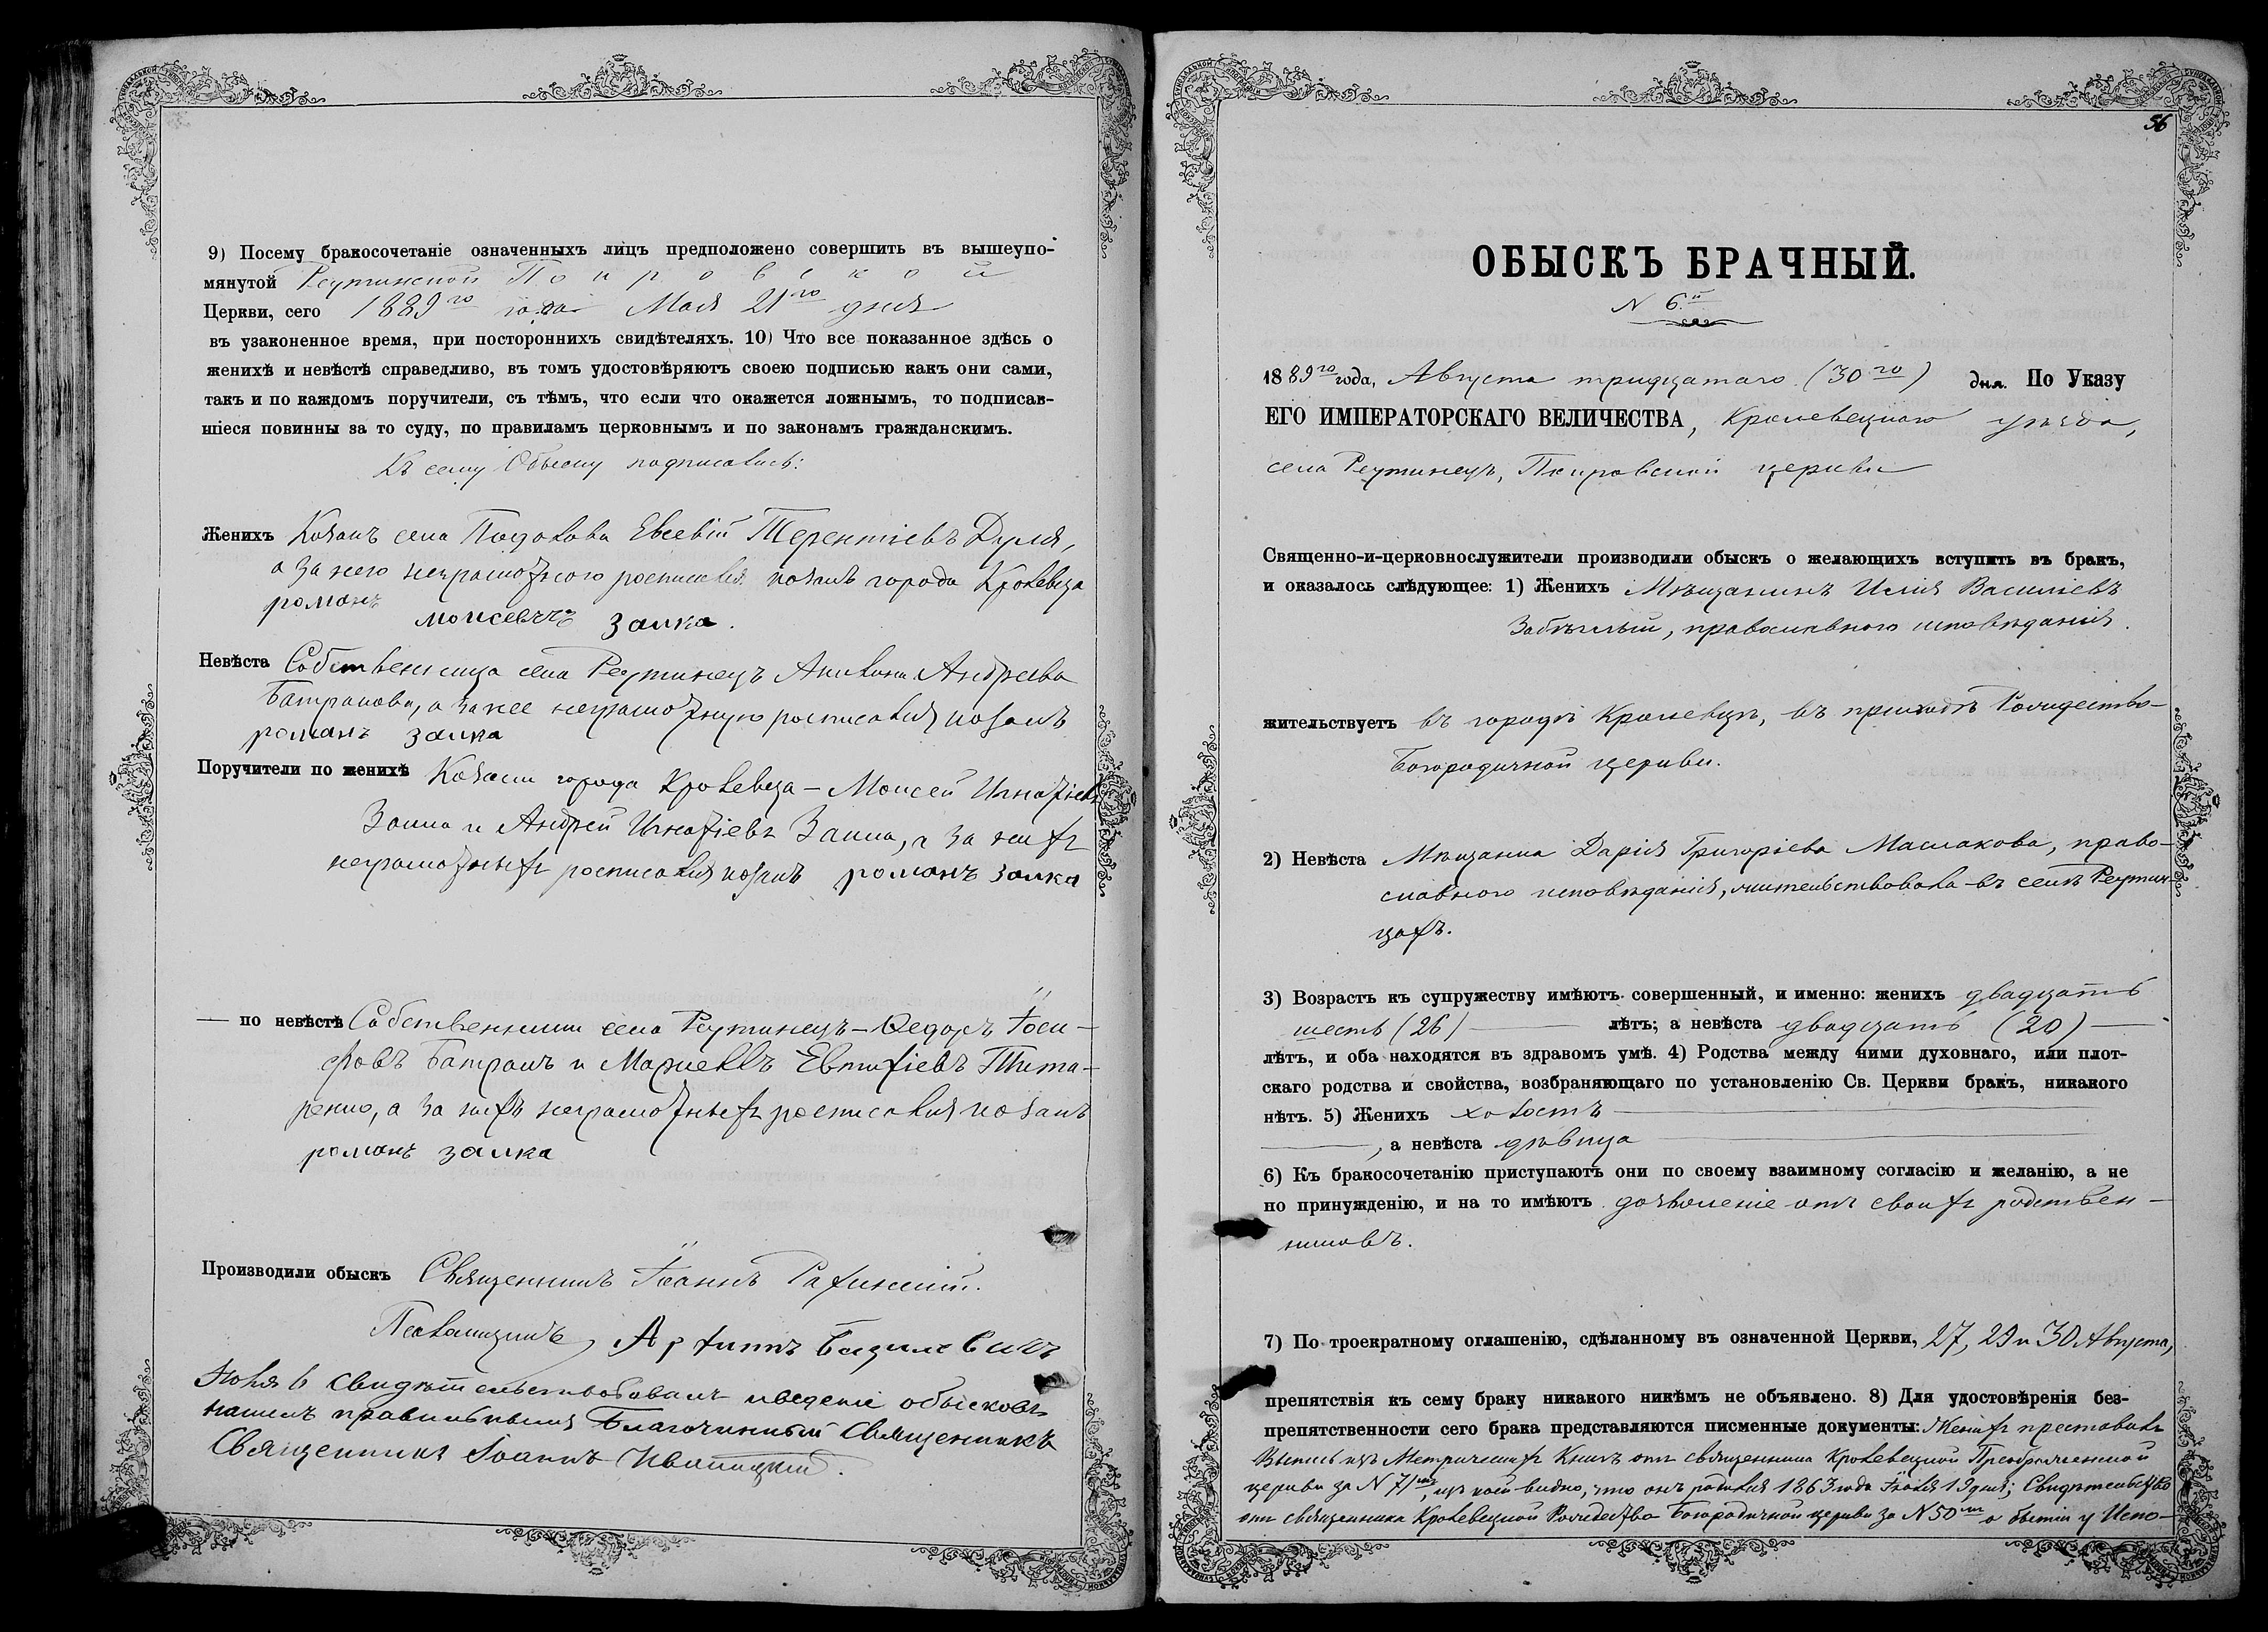 9) Посему бракосочетаніе означенныхъ лицъ предположено совершить въ вышеупо-
мянутой Реутинской Покровской
Церкви, сего 1889го года Мая 21го дня
въ узаконенное время, при постороннихъ свидѣтеляхъ. 10) Что все показанное здѣсь о
женихѣ и невѣстѣ справедливо, въ томъ удостовѣряютъ своею подписью какъ они сами,
такъ и по каждомъ поручители, съ тѣмъ, что если что окажется ложнымъ, то подписав-
шіеся повинны за то суду, по правиламъ церковнымъ и по законамъ гражданскимъ.
Къ сему Обыску подписались:
Женихъ Козакъ села Подолова Евсевій Терентіевъ Дуля,
а за него неграмотного росписался козакъ города Кролевца
романъ моисевичъ заика.
Невѣста Собственница села Реутинецъ Акилина Андреева
Батракова, а за нее неграмотную росписался козакъ
романъ заика
Поручители по женихѣ Козаки города Кролевца – Моисей Игнатіевъ
Заика и Андрей Игнатіевъ Заика, а за нихъ
неграмотныхъ росписался козакъ романъ заика
— по невѣстѣ Собственники села Реутинецъ – Ѳедоръ Іоси-
фовъ Батракъ и Маркеллъ Евтихіевъ Тита-
ренко, а за нихъ неграмотныхъ росписался козакъ
романъ заика
Производили обыскъ Священникъ Іоаннъ Рахинскій.
Псаломщикъ, Архипъ Базилевичъ
Іюля 6 свидѣтельствовалъ и веденіе обысковъ
нашелъ правильнымъ Благочинный Священникъ
Священникъ Іоаннъ
56
ОБЫСКЪ БРАЧНЫЙ.
N 6й
1889го года, Августа тридцатаго (30го) дня. По Указу
ЕГО ИМПЕРАТОРСКАГО ВЕЛИЧЕСТВА, Кролевецкаго уѣзда,
села Реутинецъ, Покровской церкви
Священно-и-церковнослужители производили обыскъ о желающихъ вступить въ бракъ,
и оказалось слѣдующее: 1) Женихъ Мѣщанинъ Илія Василіевъ
Забѣлый, православного исповѣданія.
жительствуетъ въ городѣ Кролевцѣ, въ приходѣ Рождество-
Богородичной церкви.
2) Невѣста Мѣщанка Дарія Григоріева Маслакова, право-
славного исповѣданія, жительствовала въ селѣ Реутин-
цахъ.
3) Возрастъ къ супружеству имѣютъ совершенный, и именно: женихъ двадцать
шесть (26) — лѣтъ; а невѣста двадцать (20) —
лѣтъ, и оба находятся въ здравомъ умѣ. 4) Родства между ними духовнаго, или плот-
скаго родства и свойства, возбраняющаго по установленію Св. Церкви бракъ, никакого
нѣтъ. 5) Женихъ холостъ —
—, а невѣста дѣвица —
6) Къ бракосочетанію приступаютъ они по своему взаимному согласію и желанію, а не
по принужденію, и на то имѣютъ дозволеніе отъ своихъ родствен-
никовъ.
7) По троекратному оглашенію, сдѣланному въ означенной Церкви, 27, 29 и 30 Августа,
препятствія къ сему браку никакого никѣмъ не объявлено. 8) Для удостовѣренія без-
препятственности сего брака представляются писменные документы: Женихъ преставилъ
Выпись изъ Метрическихъ Книгъ отъ священника Кролевецкой Преображенской
церкви за N 71мъ, изъ коей видно, что онъ родился 1863 года Іюля 19 дня; Свидѣтельство
отъ священника Кролевецкой Рождество Богородичной церкви за N 50мъ о бытіи у Испо-